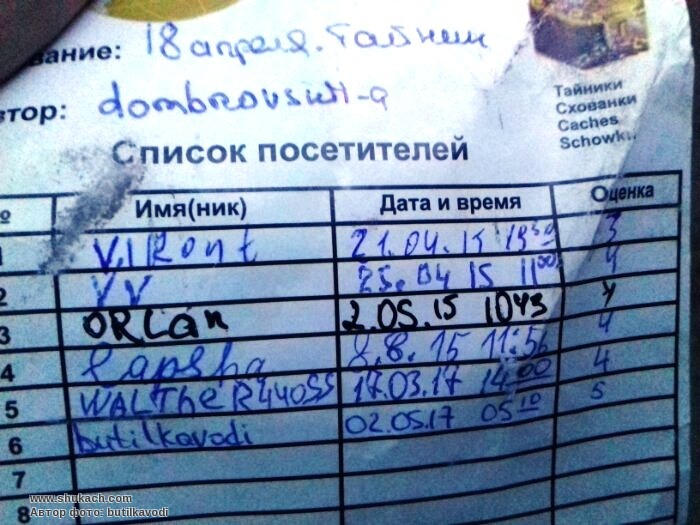 вание: 18 апреля. Тайник
втор: dombrovskii-a
Тайники
Схованки
Caches
Schowki
Список посетителей
№ Имя(ник) Дата и время Оценка
1 V.I.Ront 21.04.15 3
2 VV 25.04 15 11 00 4
3 ORLan 2.05.15 10 43
4 Lapsha 8.8.15 11:56 4
5 WALTheR440SS 17.03.17 14 00 4
6 butilkavodi 02.05.17 05 10 5
7
8
www.shukach.com
Автор фото: butilkavodi